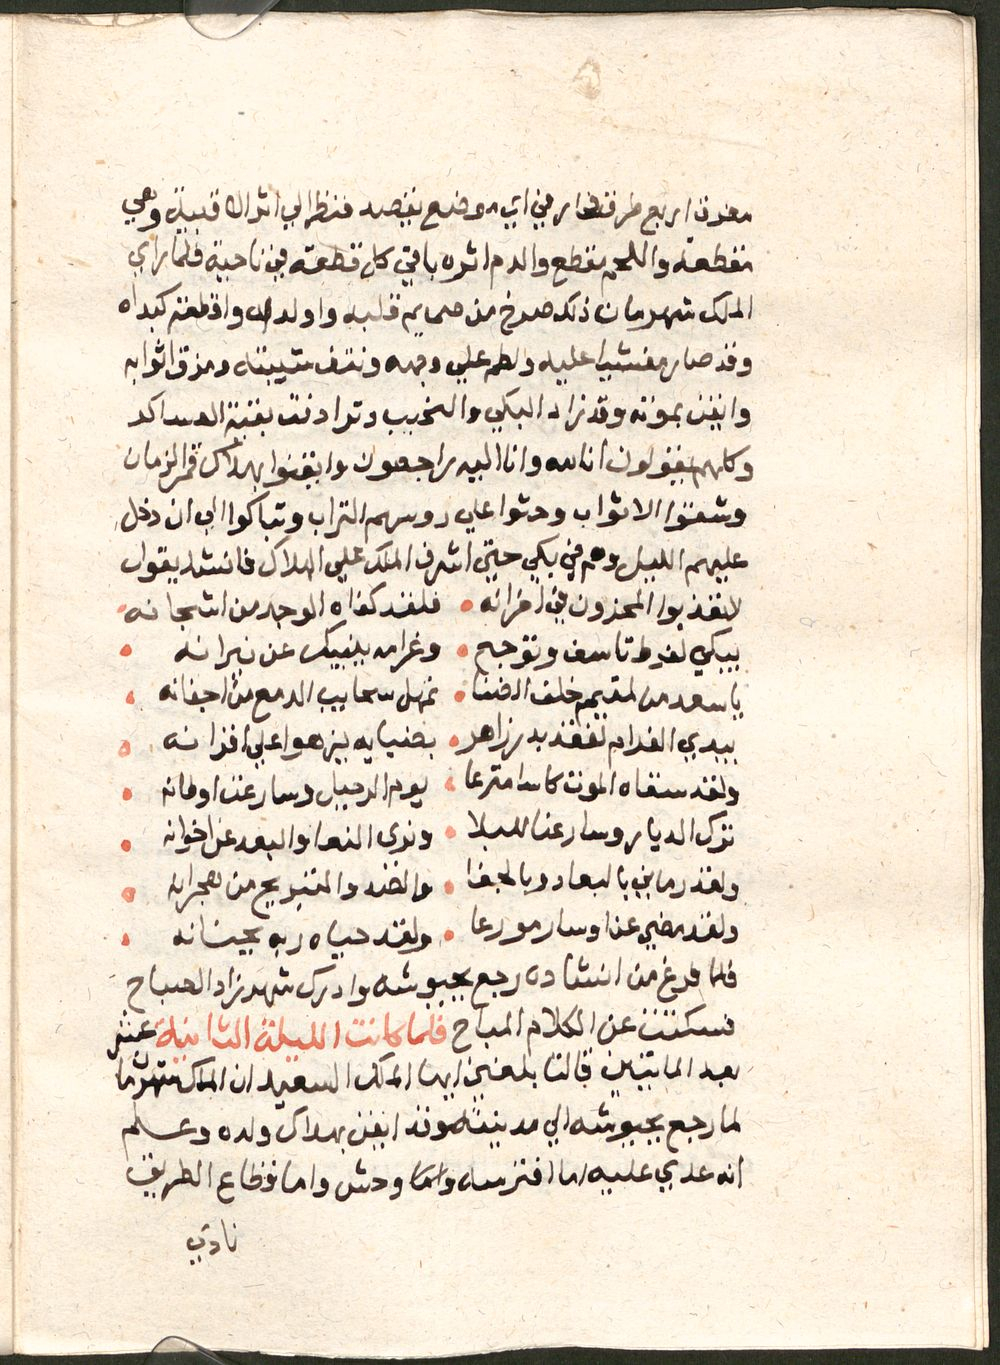 مفرق اربع طرقات اي موضع يقصد فنظر الي اثر الاقبية وهي
مقطعة واللحم مقطع والدم اثره باقي كل قطعة في ناحية فلما راي
الملك شهرمان ذلك صرخ من صميم قلبه واولداه واقطعة كبداه
وقد صار مغشيا عليه ولطم علي وجهه ونتف شيبته ومزق اثوابه
وايقن بموته وقد زاد البكي والنحيب وترادفت بقية العساكر
وكلهم يقولون انا لله وانا اليه راجعون وايقنوا بهلاك قمر الزمان
وشقوا الاثواب وحثوا علي روسهم التراب وتباكوا الي ان دخل
عليهم الليل وهم في بكي حتي اشرف الملك علي الهلاك فانشد يقول
لا تعذبوا المحزون في احزانه • فلقد كفاه الوجد من اشجانه •
يبكي لفرط تاسف وتوجع • وغرامه ينبيك عن نيرانه •
يا سعد من لمتيم حلف الضنا • تهل سحايب الدمع من اجفانه •
يبدي الغرام لفقد بدر زاهر • بضيايه يزهوا علي اقرانه •
ولقد سقاه الموت كاسا مترعا • يوم الرحيل وسار عن اوطانه •
ترك الديار وسار عنا للبلا • والبعد عن اخوانه •
ولقد رماني بالبعاد وبالجفا • والضد والتبريح من هجرانه •
ولقد مضي عنا وسار مودعا • ولقد حباه ربه بجنانه •
فلما فرغ من انشاده رجع بجيوشه وادرك شهرزاد الصباح
فسكتت عن الكلام المباح فلما كانت الليلة الثانية عشر
بعد المايتين قالت بلغني ايها الملك السعيد ان الملك شهرمان
لما رجع بجيوشه الي مدينته وقد ايقن بهلاك ولده وعلم
انه عدي عليه اما افترسه واما وحش واما قطاع الطريق
نادي